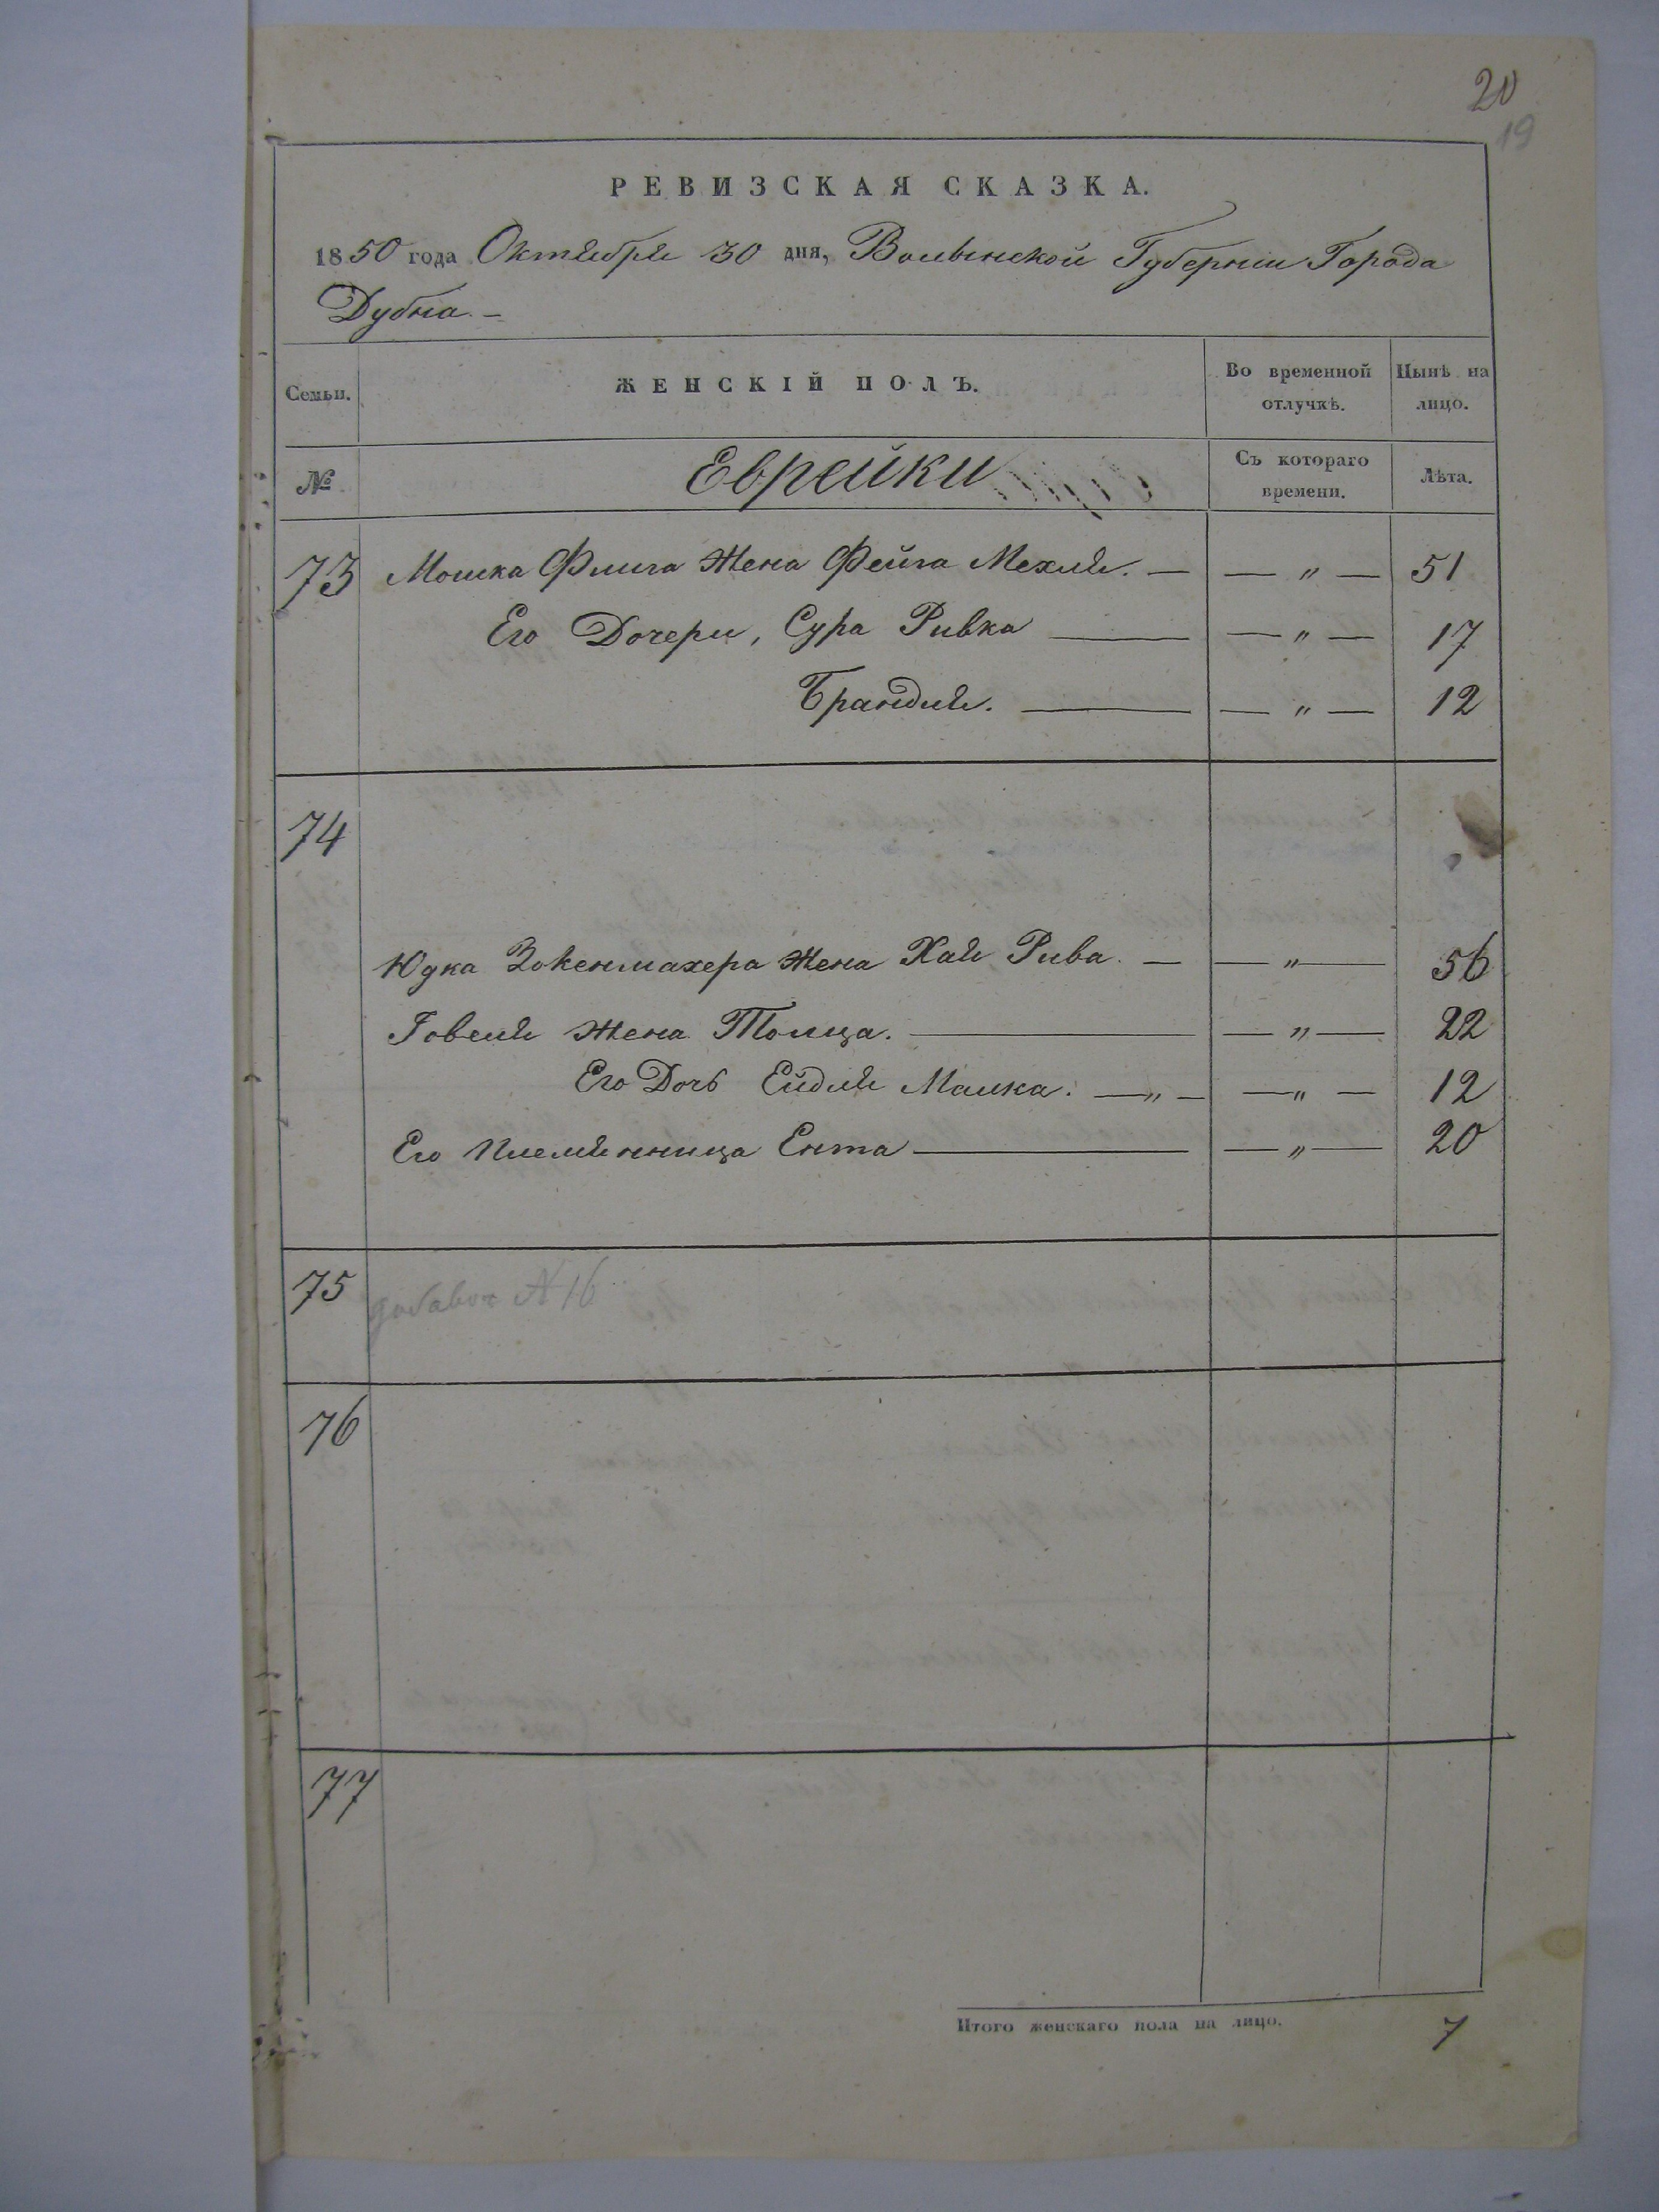 20
19
РЕВИЗСКАЯ СКАЗКА.
1850 года Октября 30 дня, Волынской Губернии Города
Дубна. —
Семьи. ЖЕНСКІЙ ПОЛЪ. Во временной отлучкѣ. Нынѣ на лицо.
№ Еврейки Съ котораго времени. Лѣта.
73 Мошка Флига Жена Фейга Мехля. — — " — 51
Его Дочери, Сура Ривка — — " — 17
Брандля. — — " — 12
74
Юдка Зокенмахера Жена Хая Рива. — — " — 56
Говеля Жена Толца. — — " — 22
Его Дочь Ейдля Малка. — " — — " — 12
Его племянница Ента — — " — 20
75 добавоч № 16
76
77
Итого женскаго пола на лицо. 7